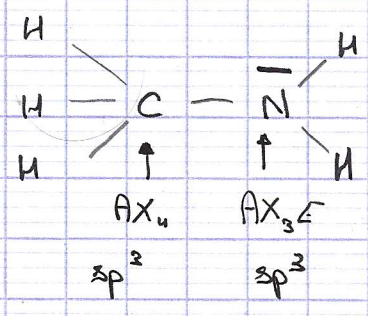 H
H
H C N
H H
AX₄ AX₃E
sp³ sp³